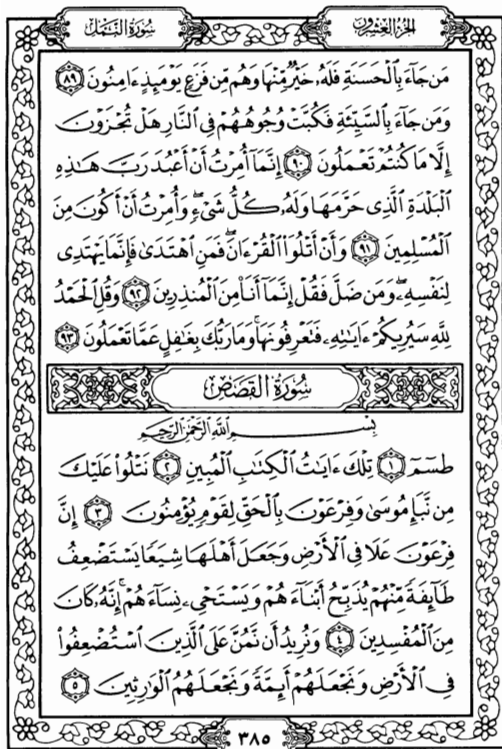 سُورَةُ النَّمْلِ
الجُزْءُ العِشْرُونَ
مَن جَآءَ بِالْحَسَنَةِ فَلَهُۥ خَيْرٌ مِّنْهَا وَهُم مِّن فَزَعٍ يَوْمَئِذٍ ءَامِنُونَ ٨٩
وَمَن جَآءَ بِالسَّيِّئَةِ فَكُبَّتْ وُجُوهُهُمْ فِى النَّارِ هَلْ تُجْزَوْنَ
إِلَّا مَا كُنتُمْ تَعْمَلُونَ ٩٠ إِنَّمَآ أُمِرْتُ أَنْ أَعْبُدَ رَبَّ هَـٰذِهِ
الْبَلْدَةِ الَّذِى حَرَّمَهَا وَلَهُۥ كُلُّ شَىْءٍ ۖ وَأُمِرْتُ أَنْ أَكُونَ مِنَ
الْمُسْلِمِينَ ٩١ وَأَنْ أَتْلُوَا۟ الْقُرْءَانَ ۖ فَمَنِ اهْتَدَىٰ فَإِنَّمَا يَهْتَدِى
لِنَفْسِهِۦ ۖ وَمَن ضَلَّ فَقُلْ إِنَّمَآ أَنَا۠ مِنَ الْمُنذِرِينَ ٩٢ وَقُلِ الْحَمْدُ
لِلَّهِ سَيُرِيكُمْ ءَايَـٰتِهِۦ فَتَعْرِفُونَهَا ۚ وَمَا رَبُّكَ بِغَـٰفِلٍ عَمَّا تَعْمَلُونَ ٩٣
سُورَةُ القَصَصِ
بِسْمِ اللَّهِ الرَّحْمَـٰنِ الرَّحِيمِ
طسٓمٓ ١ تِلْكَ ءَايَـٰتُ الْكِتَـٰبِ الْمُبِينِ ٢ نَتْلُوا۟ عَلَيْكَ
مِن نَّبَإِ مُوسَىٰ وَفِرْعَوْنَ بِالْحَقِّ لِقَوْمٍ يُؤْمِنُونَ ٣ إِنَّ
فِرْعَوْنَ عَلَا فِى الْأَرْضِ وَجَعَلَ أَهْلَهَا شِيَعًا يَسْتَضْعِفُ
طَآئِفَةً مِّنْهُمْ يُذَبِّحُ أَبْنَآءَهُمْ وَيَسْتَحْىِۦ نِسَآءَهُمْ ۚ إِنَّهُۥ كَانَ
مِنَ الْمُفْسِدِينَ ٤ وَنُرِيدُ أَن نَّمُنَّ عَلَى الَّذِينَ اسْتُضْعِفُوا۟
فِى الْأَرْضِ وَنَجْعَلَهُمْ أَئِمَّةً وَنَجْعَلَهُمُ الْوَٰرِثِينَ ٥
٣٨٥